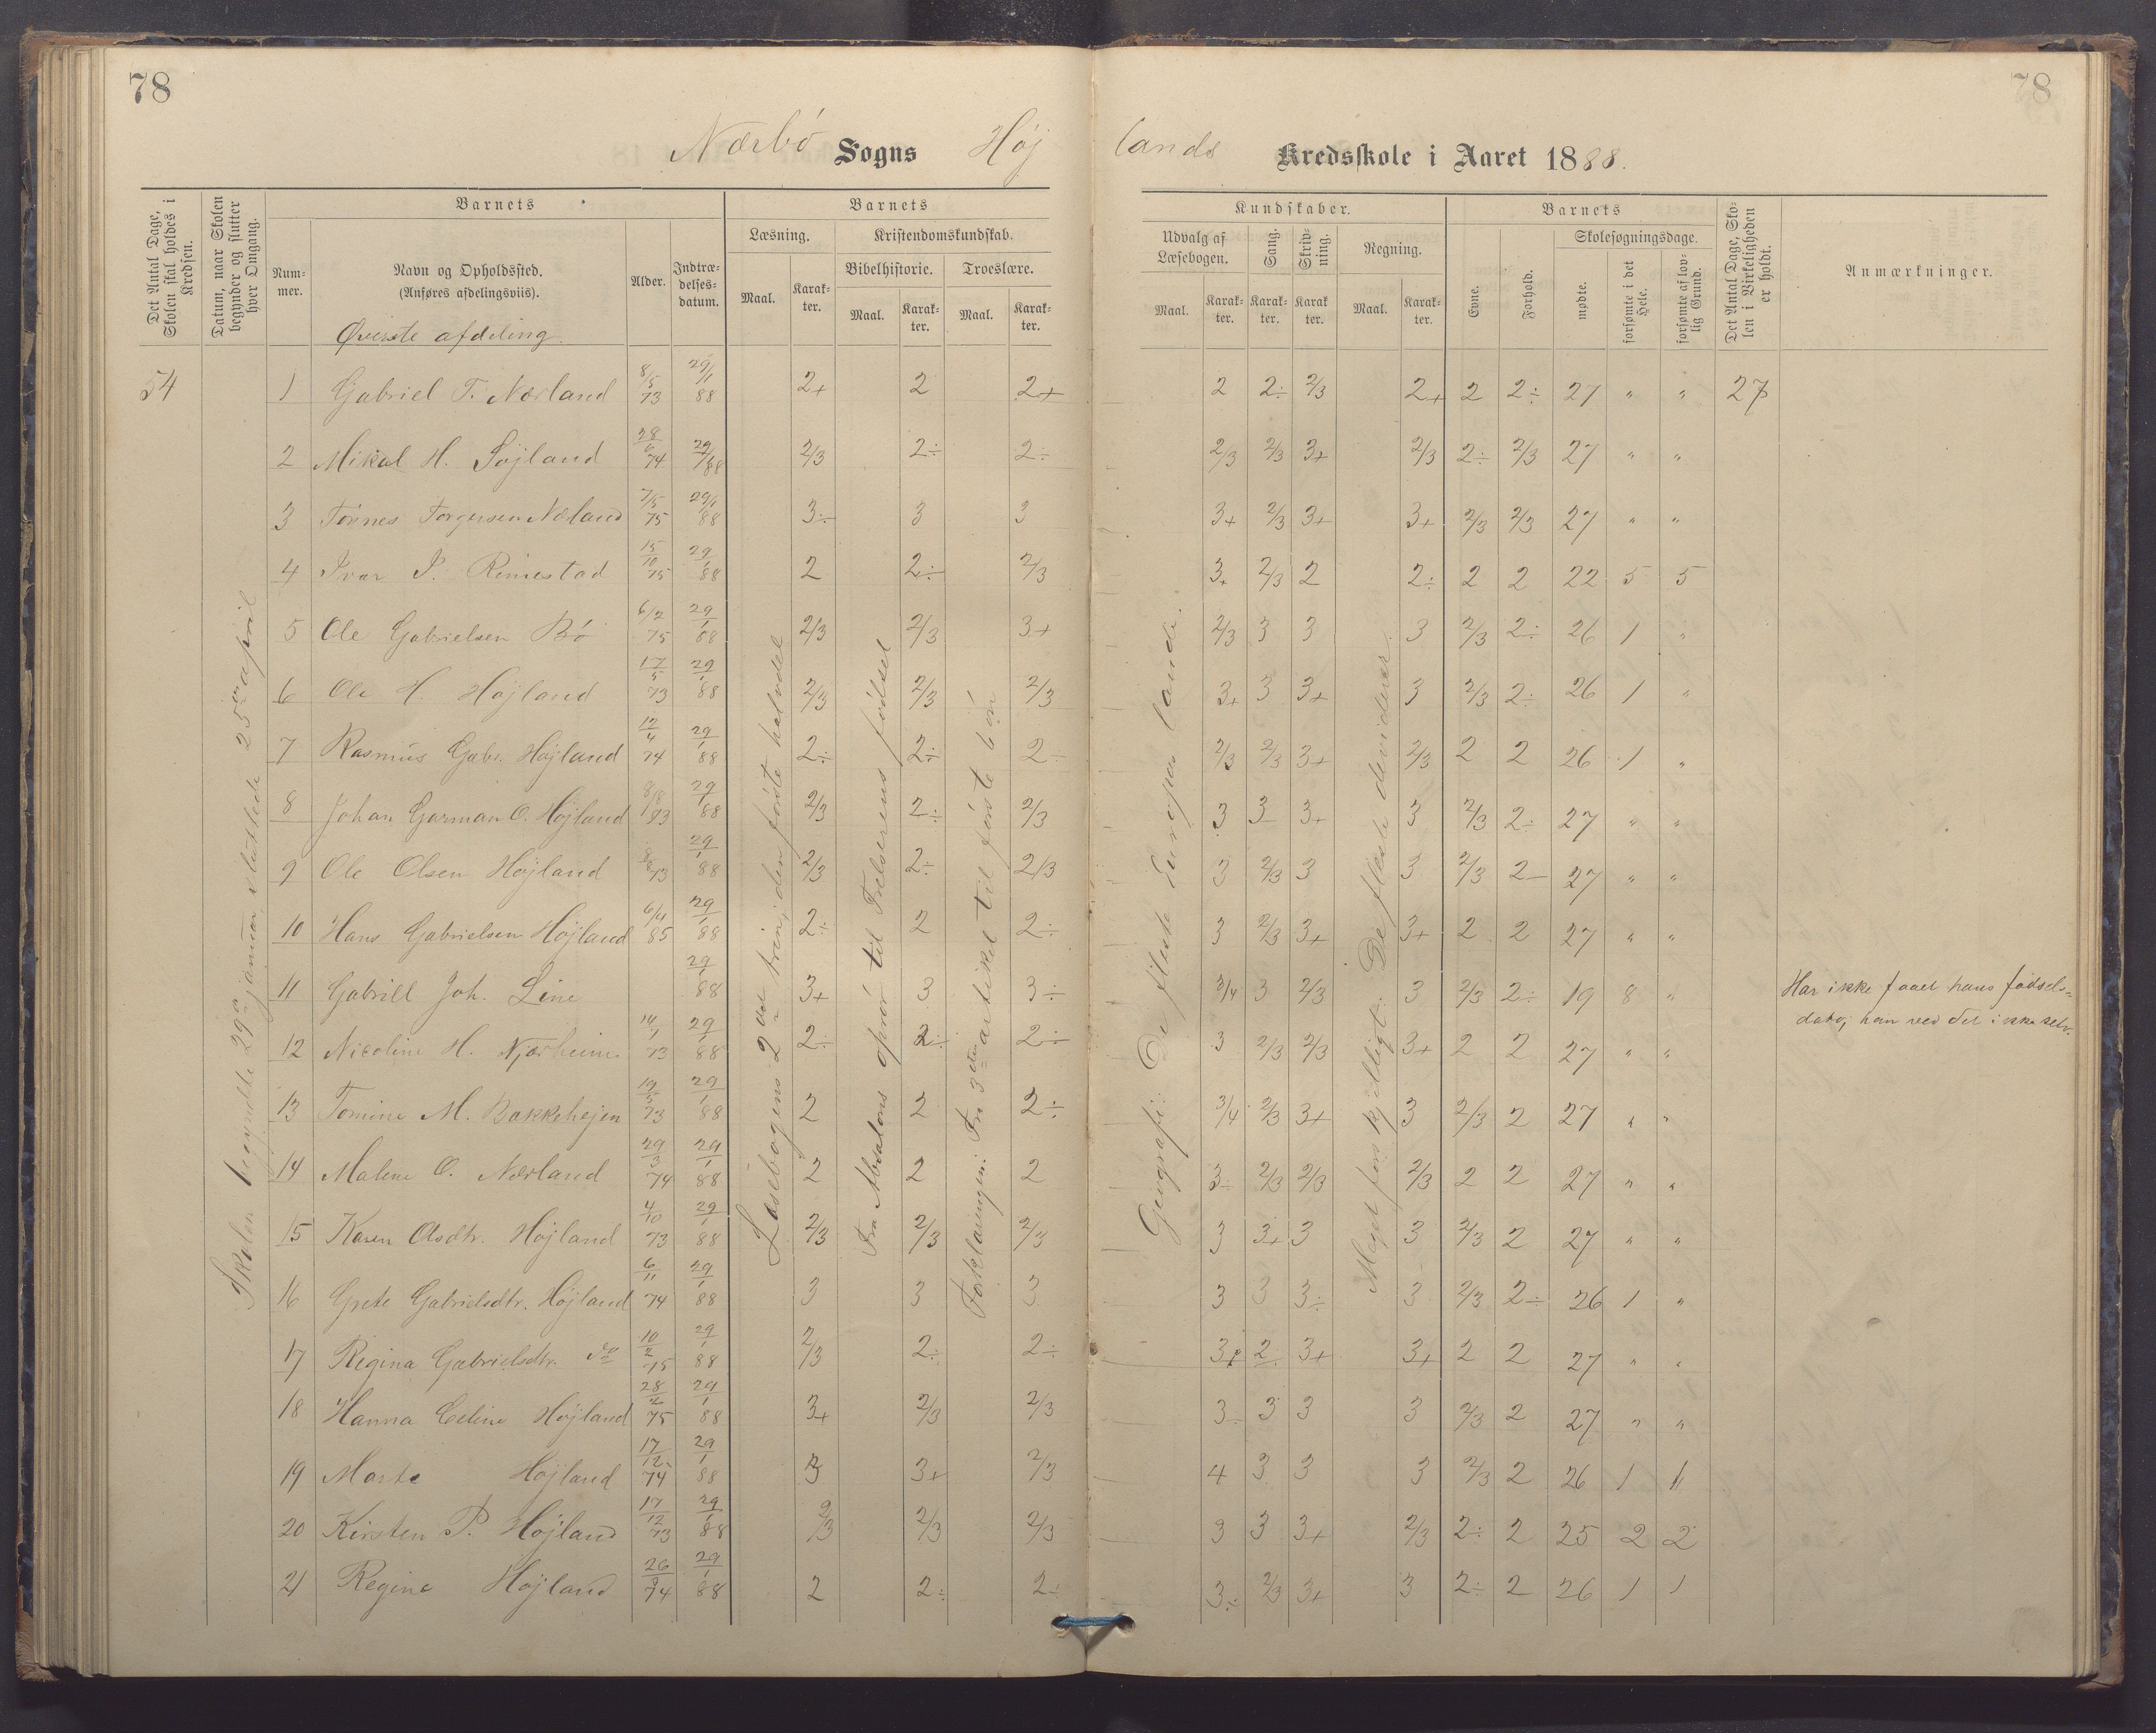 78
78
Nærbó Sogns Höj
lands Kredsskole i Aaret 1888.
Det Antal Dage, Skolen skal holdes i Kredsen.
Datum, naar Skolen begynder og slutter hver Omgang.
Barnets
Num-mer.
Navn og Opholdssted.
(Anføres afdelingsviis).
Alder.
Indtræ-delses-datum.
Barnets
Læsning.
Maal.
Karak-ter.
Kristendomskundskab.
Bibelhistorie.
Maal.
Karak-ter.
Troeslære.
Maal.
Karak-ter.
Kundskaber.
Udvalg af Læsebogen.
Maal.
Karak-ter.
Sang.
Karak-ter.
Skriv-ning.
Karak ter.
Regning.
Maal.
Karak-ter.
Barnets
Evne.
Forhold.
Skolesøgningsdage.
mødte.
forsømte i det Hele.
forsømte af lov-lig Grund.
Det Antal Dage, Sko-len i Virkeligheden er holdt.
Anmærkninger.
Øverste afdeling.
54 1 Gabriel T. Nærland 8/5 73 29/1 88 2+ 2 2+ 2 2÷ 2/3 2+ 2 2÷ 27 " " 27
2 Mikal H. Söjland 28/6 74 29/1 88 2/3 2÷ 2÷ 2/3 2/3 3+ 2/3 2÷ 2/3 27 " "
3 Tönnes Torgersen Næland 7/5 75 29/1 88 3÷ 3 3 3+ 2/3 3+ 3+ 2/3 2/3 27 " "
4 Ivar P. Rimestad 15/10 75 29/1 88 2 2÷ 2/3 3+ 2/3 2 2÷ 2 2 22 5 5
5 Ole Gabrielsen Bö 6/2 75 29/1 88 2/3 2/3 3+ 2/3 3 3 3 2/3 2÷ 26 1 "
6 Ole H. Höjland 17/5 73 29/1 88 2/3 2/3 2/3 3+ 3 3+ 3 2/3 2÷ 26 1 "
7 Rasmus Gabr. Höjland 12/4 74 29/1 88 2÷ 2÷ 2÷ 2/3 2/3 3+ 2/3 2 2 26 1 "
8 Johan Garman O. Höjland 8/8 73 29/1 88 2/3 2÷ 2/3 3 3 3+ 3 2/3 2÷ 27 " "
9 Ole Olsen Höjland 73 29/1 88 2/3 2÷ 2/3 3 2/3 3 3 2/3 2÷ 27 " "
10 Hans Gabrielsen Höjland 6/4 85 29/1 88 2÷ 2 2÷ 3 2/3 3+ 3+ 2 2 27 " "
11 Gabriel Joh. Line 29/1 88 3+ 3 3÷ 3/4 3 2/3 3 2/3 2÷ 19 8 " Har ikke faaet hans födsels=
dato; han ved det ikke selv.
12 Nicoline H. Njærheim 14/1 73 29/1 88 2÷ 2÷ 2÷ 3 2/3 2/3 3+ 2 2 27 " "
13 Tomine M. Bakkehejen 19/5 73 29/1 88 2 2 2÷ 3/4 2/3 3+ 3 2/3 2 27 " "
14 Malene O. Nærland 29/3 74 29/1 88 2 2 2 3÷ 2/3 2/3 2/3 2 2 27 " "
15 Karen Olsdtr. Höjland 4/10 73 29/1 88 2/3 2/3 2/3 3 3+ 3 3 2/3 2 27 " "
16 Grete Gabrielsdtr. Höjland 6/11 74 29/1 88 3 3 3 3 3 3÷ 3 2/3 2÷ 26 1 "
17 Regina Gabrielsdtr. do 10/2 75 29/1 88 2/3 2÷ 2÷ 3+ 2 3+ 3+ 2 2 27 " "
18 Hanna Celine Höjland 28/2 75 29/1 88 3+ 2/3 2/3 3÷ 3 3 3 2/3 2 27 " "
19 Marta Höjland 17/12 74 29/1 88 3 3+ 2/3 4 3 3 3 2/3 2 26 1 1
20 Kirsten P. Höjland 17/12 73 29/1 88 2/3 2/3 2/3 3 3 3+ 2/3 2÷ 2 25 2 2
21 Regine Höjland 26/9 74 29/1 88 2 2÷ 2÷ 3÷ 2/3 3+ 3 2÷ 2 26 1 1
Skolen begyndte 29de januar sluttede 25de april
Læsebogens 2det trin, den förste halvdel
Fra Absalons oprör til Frelserens födsel
Forklaringen: Fra 3die artikel til förste bön
Geografi: De fleste Europas lande.
Meget forskjelligt. De fleste dividerer.